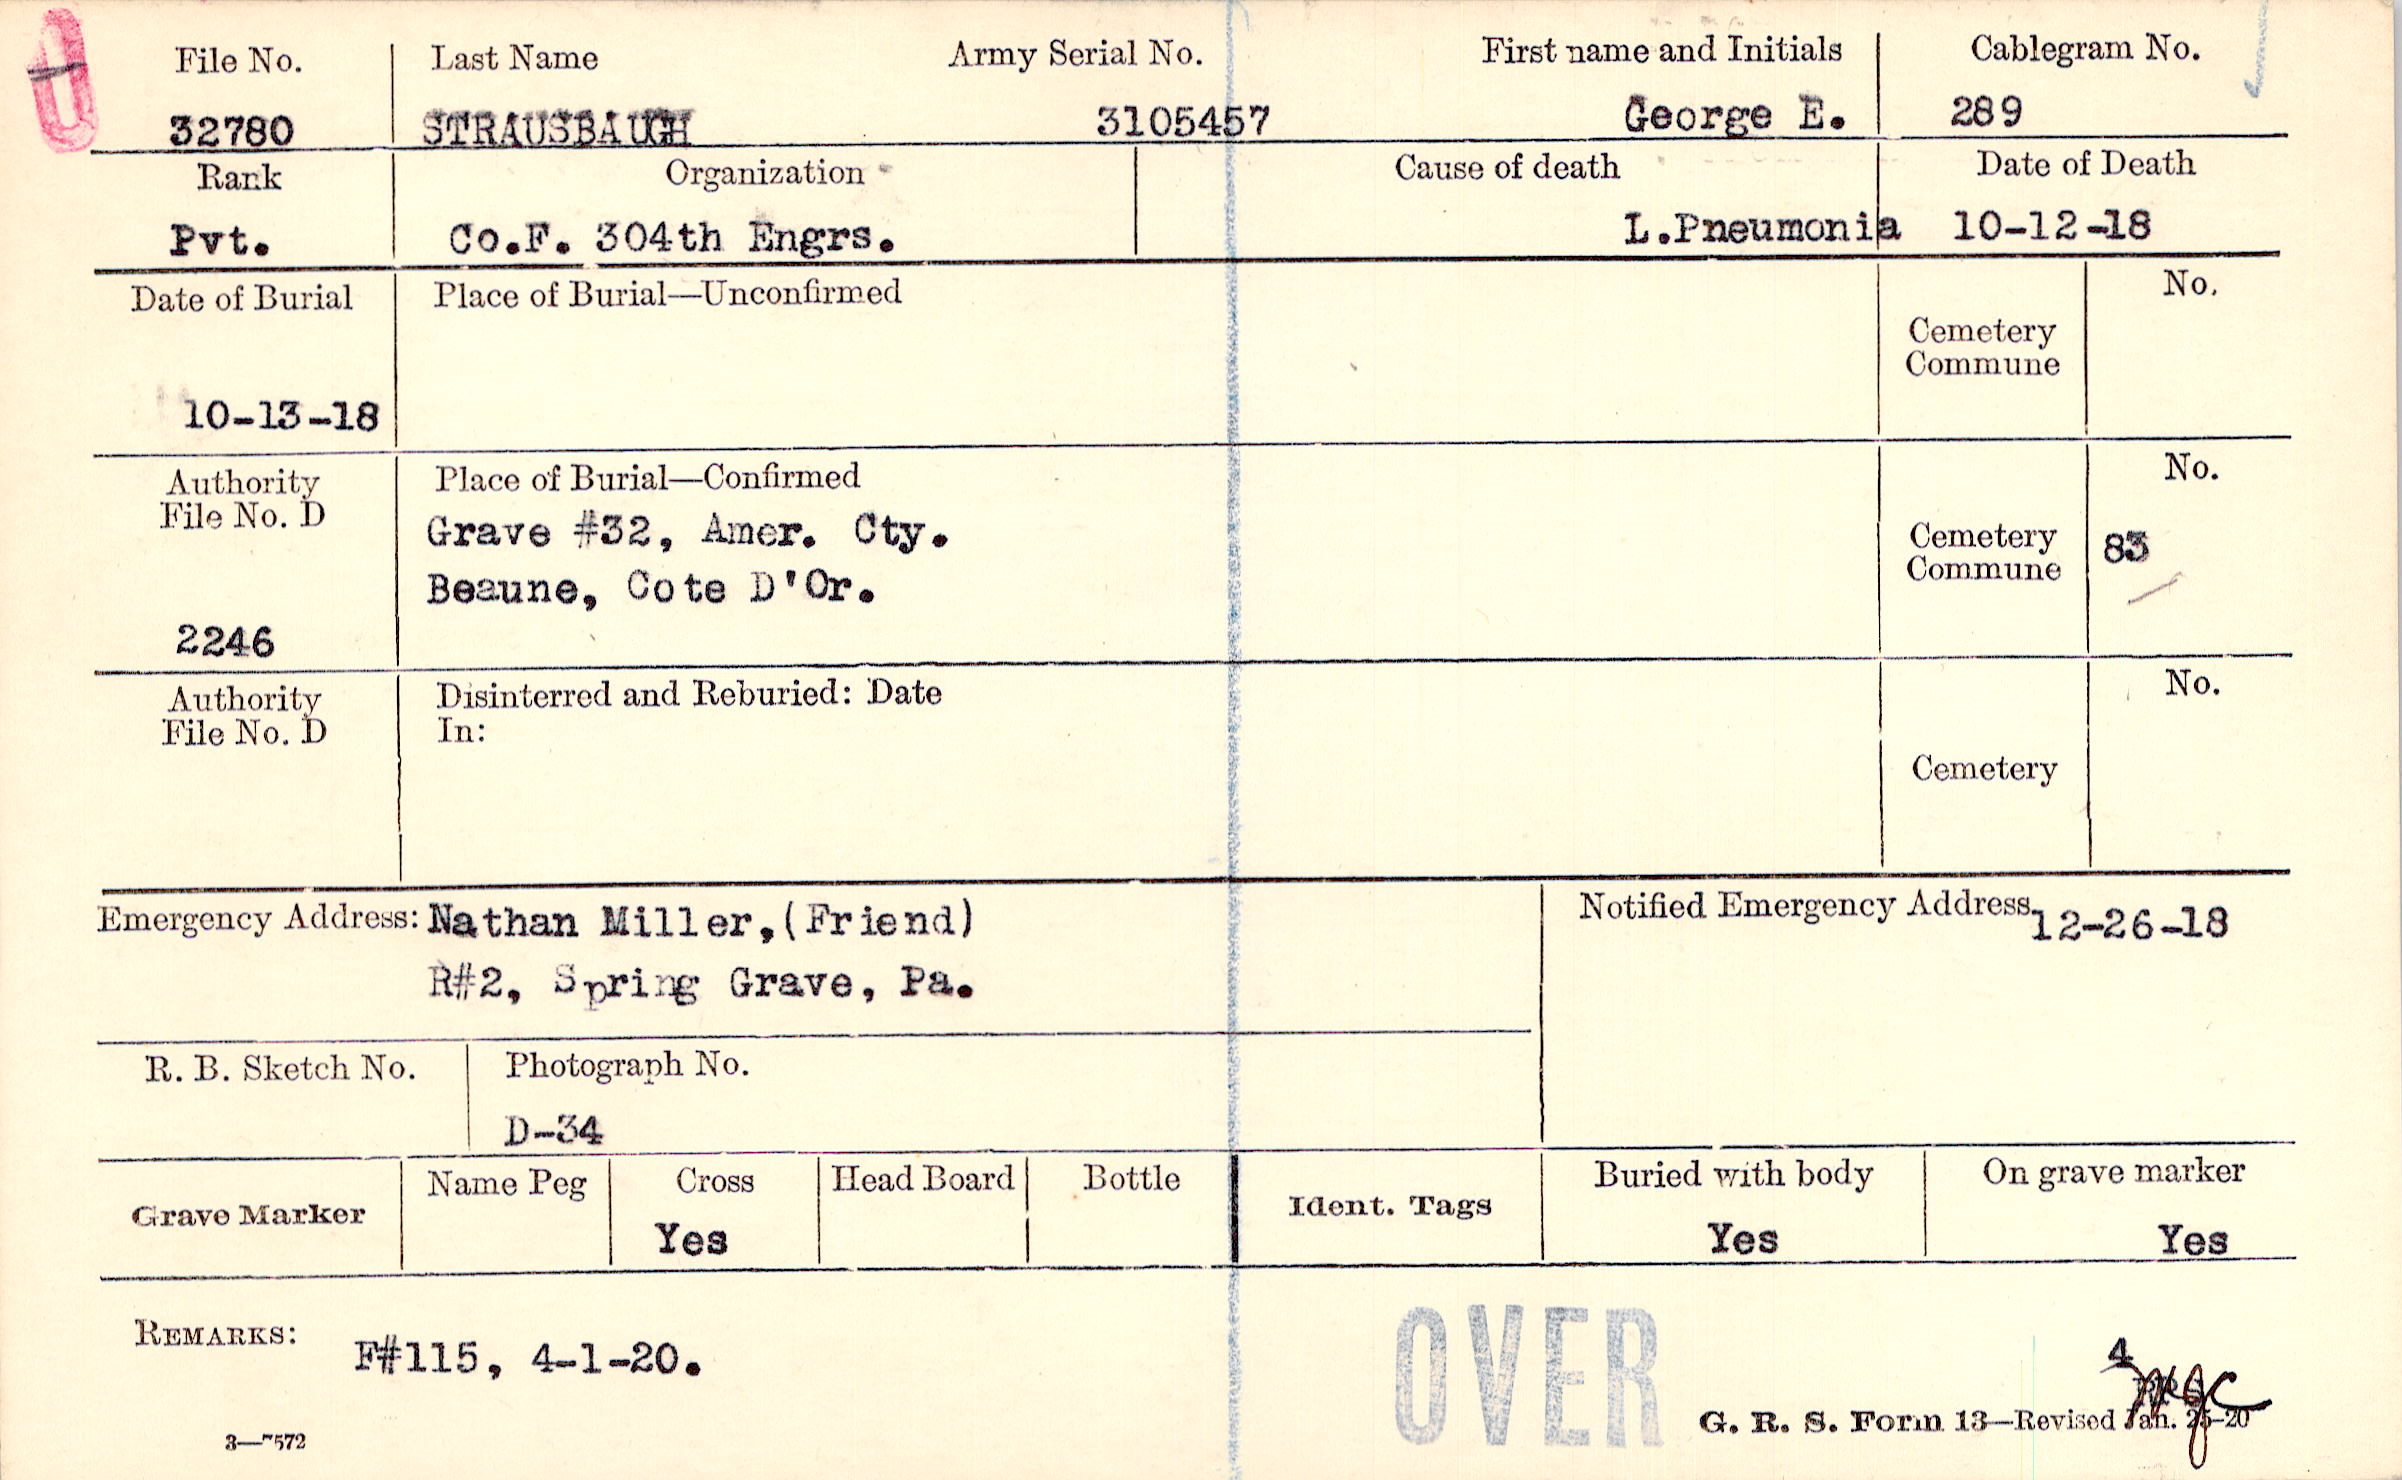 File No. Last Name Army Serial No. First name and Initials Cablegram No.
32780 STRAUSBAUGH 3105457 George E. 289
Rank Organization Cause of death Date of Death
Pvt. Co.F. 304th Engrs. L.Pneumonia 10-12-18
Date of Burial Place of Burial—Unconfirmed No.
Cemetery
Commune
10-13-18
Authority Place of Burial—Confirmed No.
File No. D
Grave #32, Amer. Cty. Cemetery 83
Commune
Beaune, Cote D'Or.
2246
Authority Disinterred and Reburied: Date No.
File No. D In:
Cemetery
Emergency Address: Nathan Miller,(Friend) Notified Emergency Address 12-26-18
R#2, Spring Grave, Pa.
R. B. Sketch No. Photograph No.
D-34
Grave Marker Name Peg Cross Head Board Bottle Ident. Tags Buried with body On grave marker
Yes Yes Yes
REMARKS: F#115, 4-1-20.
OVER
4
G. R. S. Form 13—Revised Jan. 25-20
3—7572